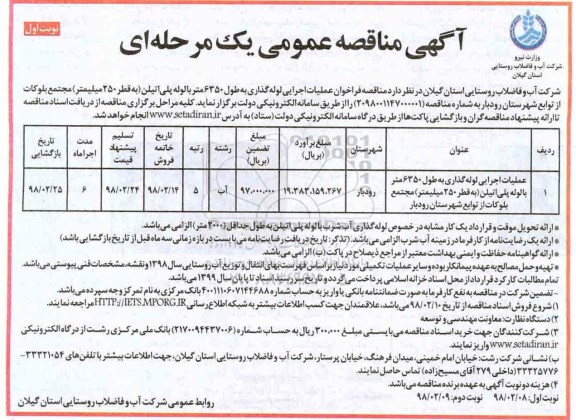 نوبت اول
وزارت نیرو
شرکت آب و فاضلاب روستایی
استان گیلان
آگهی مناقصه عمومی یک مرحله‌ای
شرکت آب و فاضلاب روستایی استان گیلان در نظر دارد مناقصه فراخوان عملیات اجرایی لوله‌گذاری به طول ۶۳۵۰ متر با لوله پلی اتیلن (به قطر ۲۵۰ میلیمتر) مجتمع بلوکات
از توابع شهرستان رودبار به شماره مناقصه (۲۰۹۸۰۰۱۱۴۷۰۰۰۰۰۱) را از طریق سامانه الکترونیکی دولت برگزار نماید. کلیه مراحل برگزاری مناقصه از دریافت اسناد مناقصه
تا ارائه پیشنهاد مناقصه‌گران و بازگشایی پاکت‌ها از طریق درگاه سامانه الکترونیکی دولت (ستاد) به آدرس www.setadiran.ir انجام خواهد شد.
ردیف عنوان شهرستان مبلغ برآورد (بریال) مبلغ تضمین (بریال) رشته رتبه تاریخ خاتمه فروش تسلیم پیشنهاد قیمت مدت اجرا ماه تاریخ بازگشایی
۱ عملیات اجرایی لوله‌گذاری به طول ۶۳۵۰ متر با لوله پلی اتیلن (به قطر ۲۵۰ میلیمتر) مجتمع بلوکات از توابع شهرستان رودبار رودبار ۱۹،۳۸۳،۱۵۹،۲۶۷ ۹۷۰،۰۰۰،۰۰۰ آب ۵ ۹۸/۰۲/۱۴ ۹۸/۰۲/۲۴ ۶ ۹۸/۰۲/۲۵
* ارائه تحویل موقت و قرارداد یک کار مشابه در خصوص لوله‌گذاری آب شرب با لوله پلی اتیلن به طول حداقل (۲۰۰۰ متر) الزامی می‌باشد.
* ارائه یک رضایت‌نامه از کارفرما در زمینه آب شرب الزامی می‌باشد. (تذکر: تاریخ دریافت رضایت‌نامه می‌بایست در بازه زمانی سه ماه قبل از تاریخ بازگشایی باشد)
* ارائه گواهینامه حفاظت و ایمنی بهداشت معتبر از مراجع ذیصلاح در پاکت (ب) الزامی می‌باشد.
* تهیه و حمل مصالح به عهده پیمانکار بوده و سایر عملیات تکمیلی مورد نیاز بر اساس فهرست بهای انتقال و توزیع آب روستایی سال ۱۳۹۸ و نقشه، مشخصات فنی پیوستی می‌باشد.
تمام مطالبات کارکرد قرارداد از محل اسناد خزانه اسلامی پرداخت می‌گردد و تاریخ سررسید اسناد تا پایان سال ۱۳۹۹ می‌باشد.
- تضمین شرکت در مناقصه به نفع کارفرما به صورت ضمانتنامه بانکی یا واریز به حساب شماره ۴۰۰۱۱۱۶۰۷۱۴۴۶۸۸ بانک مرکزی به نام تمرکز وجوه سپرده می‌باشد.
۱) شروع فروش اسناد مناقصه از تاریخ ۹۸/۰۲/۱۰ می‌باشد، علاقمندان جهت کسب اطلاعات بیشتر به شبکه اطلاع رسانی HTTP://IETS.MPORG.IR مراجعه نمایند.
۲) دستگاه نظارت: معاونت مهندسی و توسعه
۳) شرکت کنندگان جهت خرید اسناد مناقصه می‌بایستی مبلغ ۳۰۰،۰۰۰ ریال به حساب شماره (۲۱۷۰۰۹۴۴۳۷۰۰۶) بانک ملی مرکزی رشت از درگاه الکترونیکی
www.setadiran.ir واریز نمایند.
ب) نشانی شرکت: رشت: خیابان امام خمینی، میدان فرهنگ، خیابان پرستار، شرکت آب و فاضلاب روستایی استان گیلان، جهت اطلاعات بیشتر با تلفن‌های ۳۳۳۲۱۰۵۴-
۳۳۳۲۵۷۷۶ (داخلی ۲۷۹ آقای مسیح‌زاده) تماس حاصل نمایند.
۴) هزینه دو نوبت آگهی به عهده برنده مناقصه می‌باشد.
نوبت اول: ۹۸/۰۲/۰۸ نوبت دوم: ۹۸/۰۲/۰۹
روابط عمومی شرکت آب و فاضلاب روستایی استان گیلان